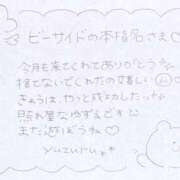 ビーサイドの本指名さま♡
今月も来てくれてありがとう
捨てないでくれたの嬉しい
きょうは、やっと成功した
照れ屋なゆずです
また遊ぼうね♡
yuzuru